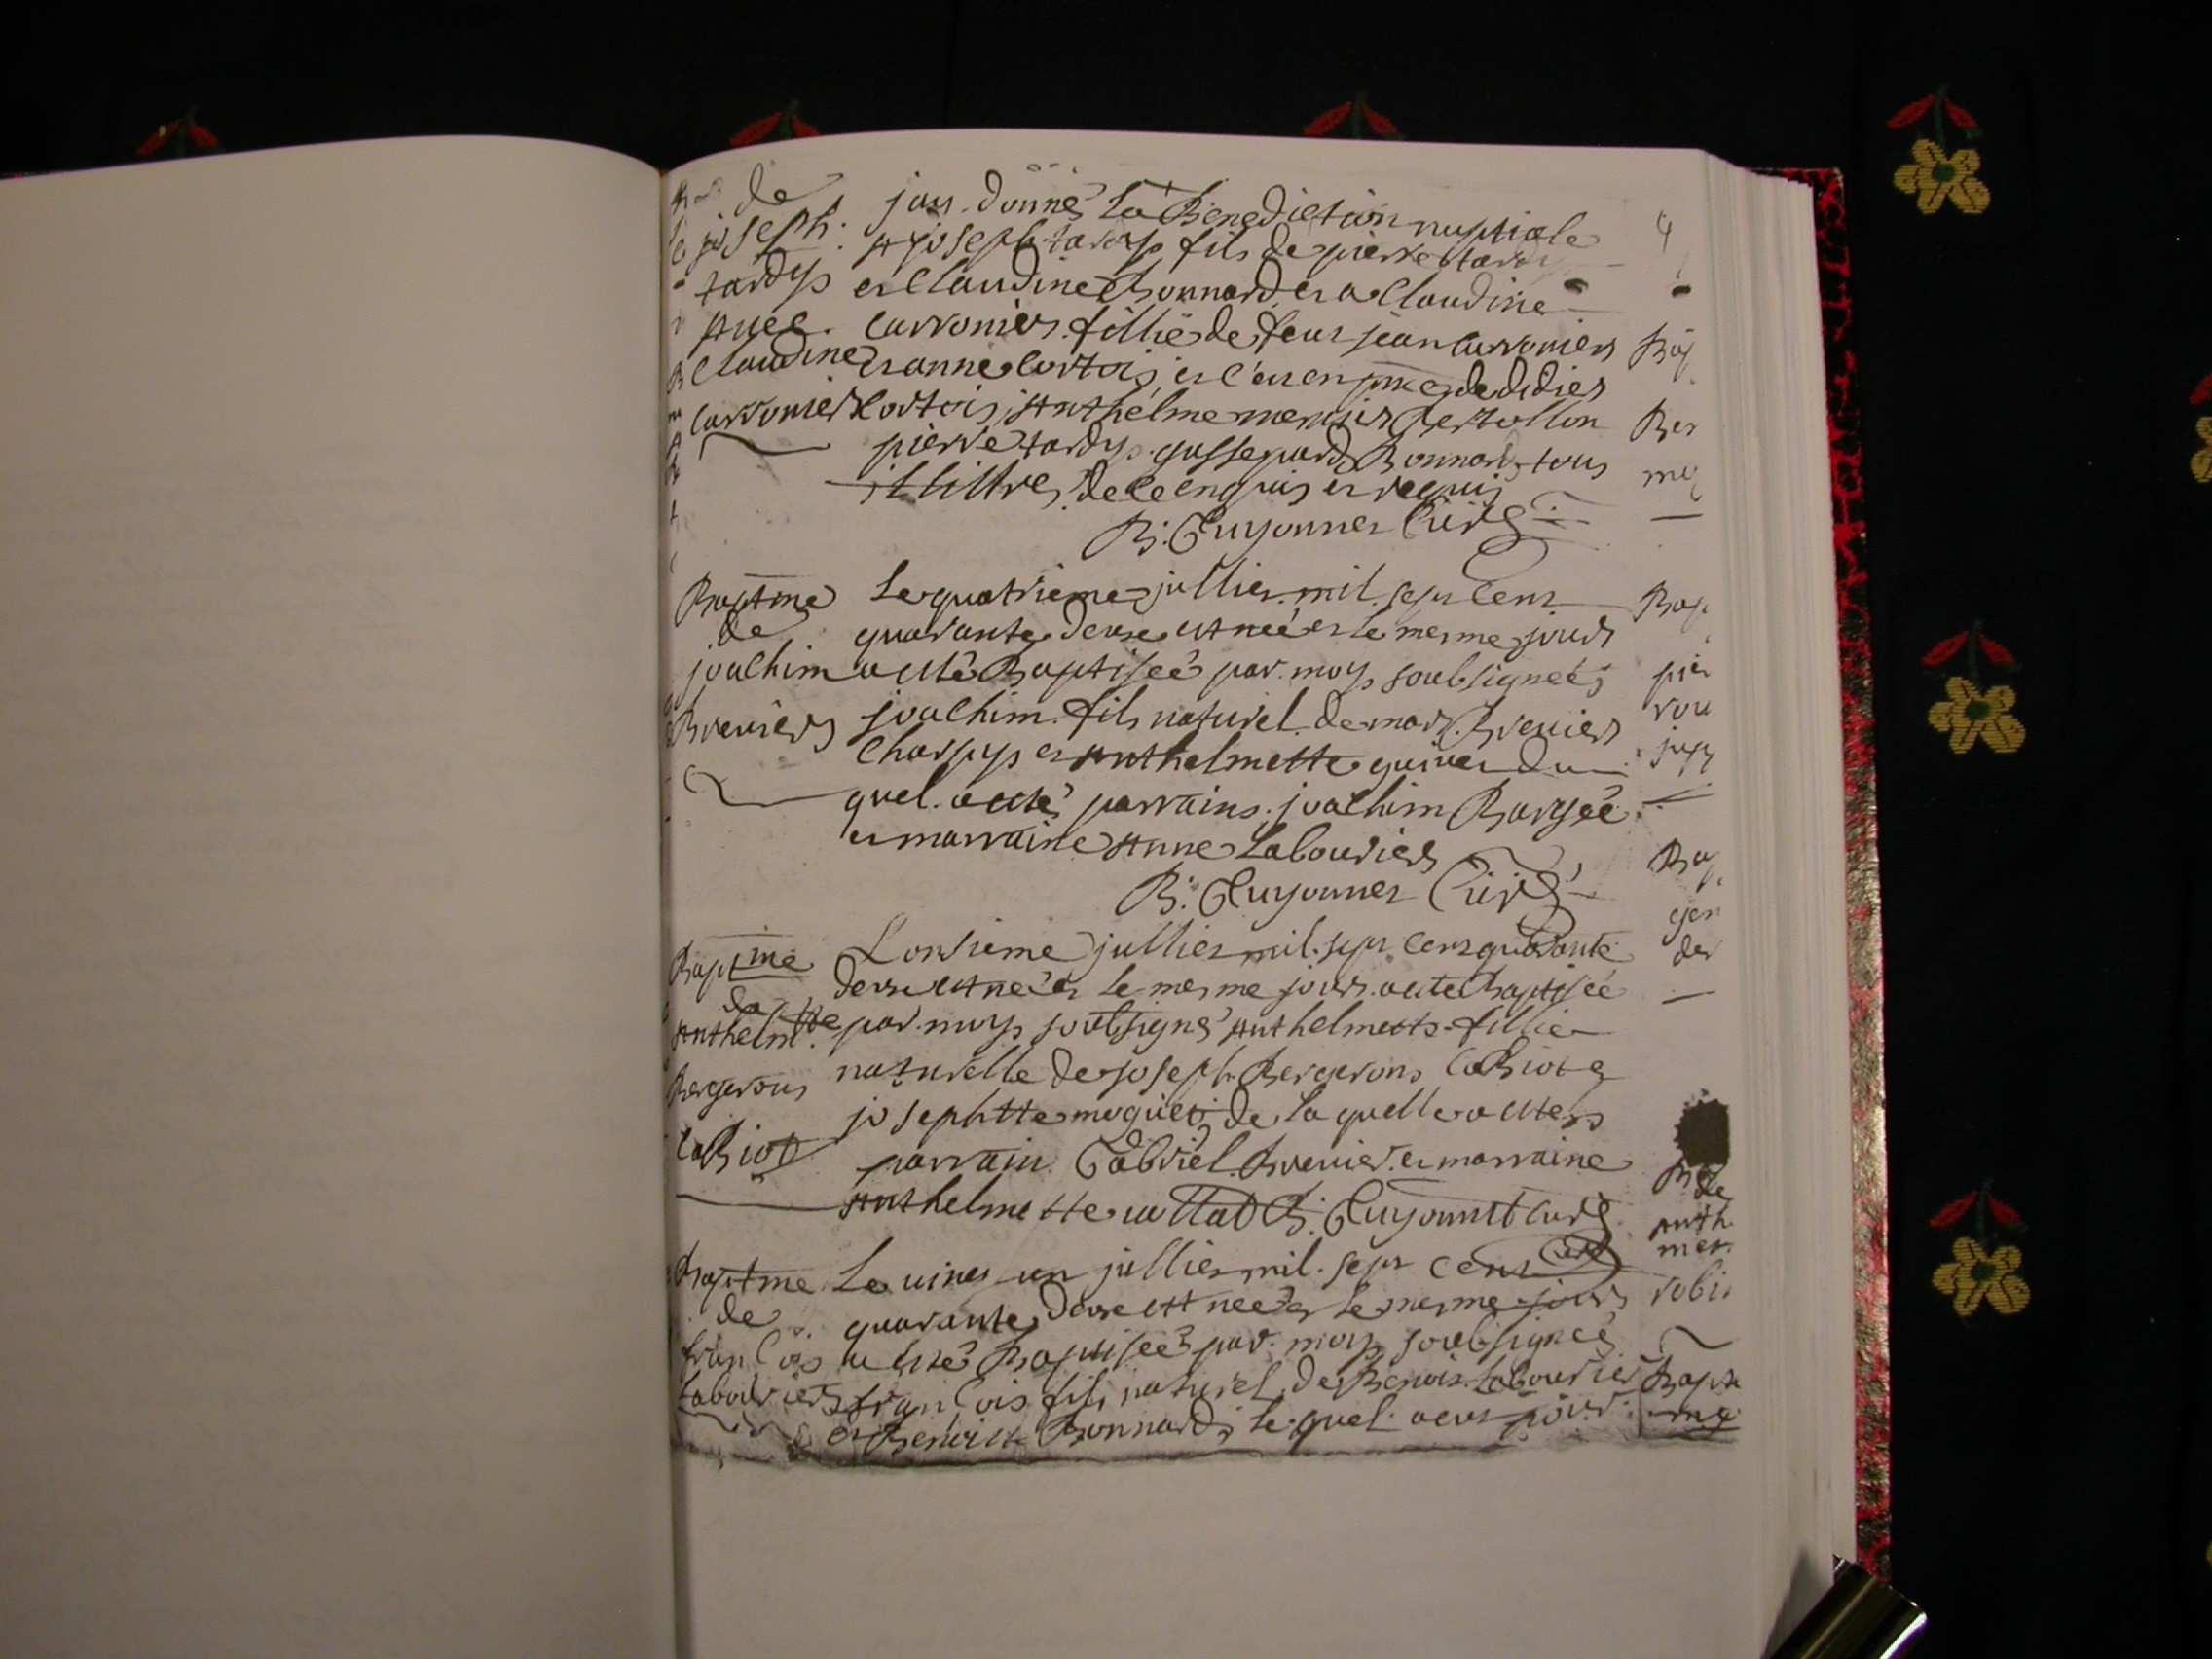 de
joseph
tardys
avec
Claudine
Carronier
jay donné La Benediction nuptiale
A joseph tardys fils de pierre tardy
et Claudine Bonnard et a Claudine
Carronier fillie de feux jean Carronier
et anne Cortois et l'en en pnce de didier
Cortois, Anthelme mercier de rollon
pierre tardys gaspard Bonnard tous
illitres de ce enquis et requis
B: Guyonnet Curé
Baptme
de
joachim
Brenier
Le quatrieme jullier mil sept Cent
quarante deux est neé et le mesme jour
a esté Baptiseé par moy soubsigneé
joachim fils naturel de marc Brenier
Charpy et Anthelmette guinet du
quel a esté parrains joachim Bargeé
et marraine Anne Labourier
B: Guyonnet Curé
Baptme
de
Anthelmtte
Bergerons
CaBiot
Lonsieme jullier mil sept Cent quarante
deux est neé et le mesme jour a esté baptiseé
par moy soubsigné Anthelmette fillie
naturelle de joseph Bergerons CaBiot et
josephtte moguet de la quelle a estes
parrain Gabriel Brenier et marraine
Anthelmette collat B: Guyonnet Curé
Baptme
de
franCois
Labourier
Le vinet un jullier mil sept Cent
quarante deux est neé et le mesme jour
a esté Baptiseé par moy soubsigneé
franCois fils naturel de Benoit Labourier
et Benoite Bonnard, le quel a eut pour